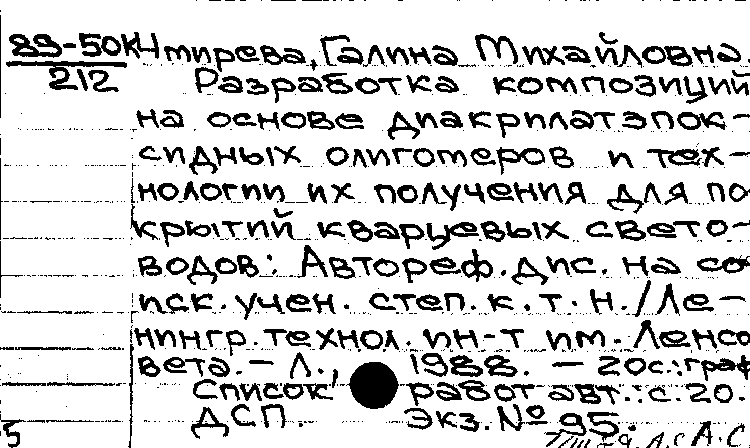 89-50к Чтирева, Галина Михайловна.
212 Разработка композиций
на основе диакрилатэпок-
сидных олигомеров и тех-
нологии их получения для по
крытий кварцевых свето-
водов: Автореф. дис. на со
иск. учен. степ. к.т.н./Ле-
нингр. технол. ин-т им. Ленсо
вета. - Л., 1988. - 20с.:граф
Список работ авт.: с.20.
ДСП. Экз. № 95.
5